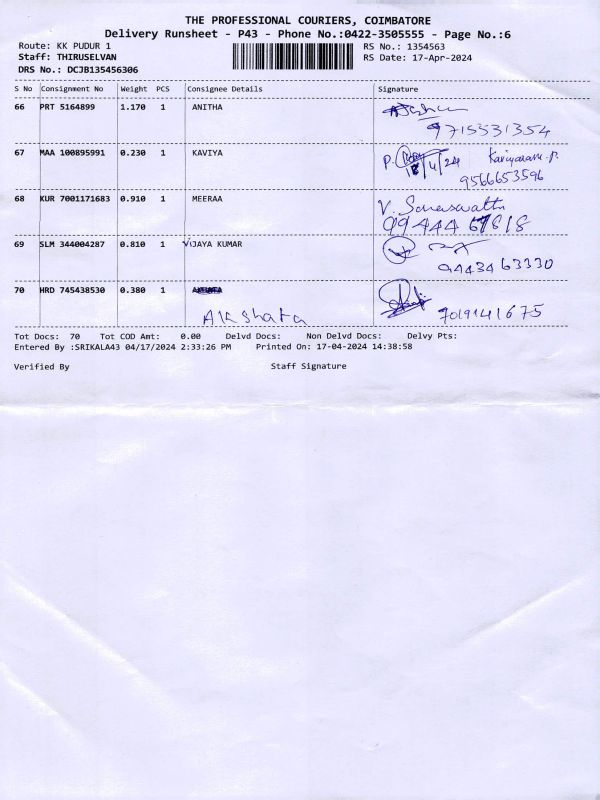 THE PROFESSIONAL COURIERS, COIMBATORE
Delivery Runsheet - P43 - Phone No.:0422-3505555 - Page No.:6
Route: KK PUDUR 1 RS No.: 1354563
Staff: THIRUSELVAN RS Date: 17-Apr-2024
DRS No.: DCJB135456306
S No Consignment No Weight PCS Consignee Details Signature
66 PRT 5164899 1.170 1 ANITHA
9715531354
67 MAA 100895991 0.230 1 KAVIYA P. 18/4/24
9566653596
68 KUR 7001171683 0.910 1 MEERAA V. Saraswathi
99444 67818
69 SLM 344004287 0.810 1 VIJAYA KUMAR
94434 63330
70 HRD 745438530 0.380 1
Akshata 7019141675
Tot Docs: 70 Tot COD Amt: 0.00 Delvd Docs: Non Delvd Docs: Delvy Pts:
Entered By :SRIKALA43 04/17/2024 2:33:26 PM Printed On: 17-04-2024 14:38:58
Verified By Staff Signature